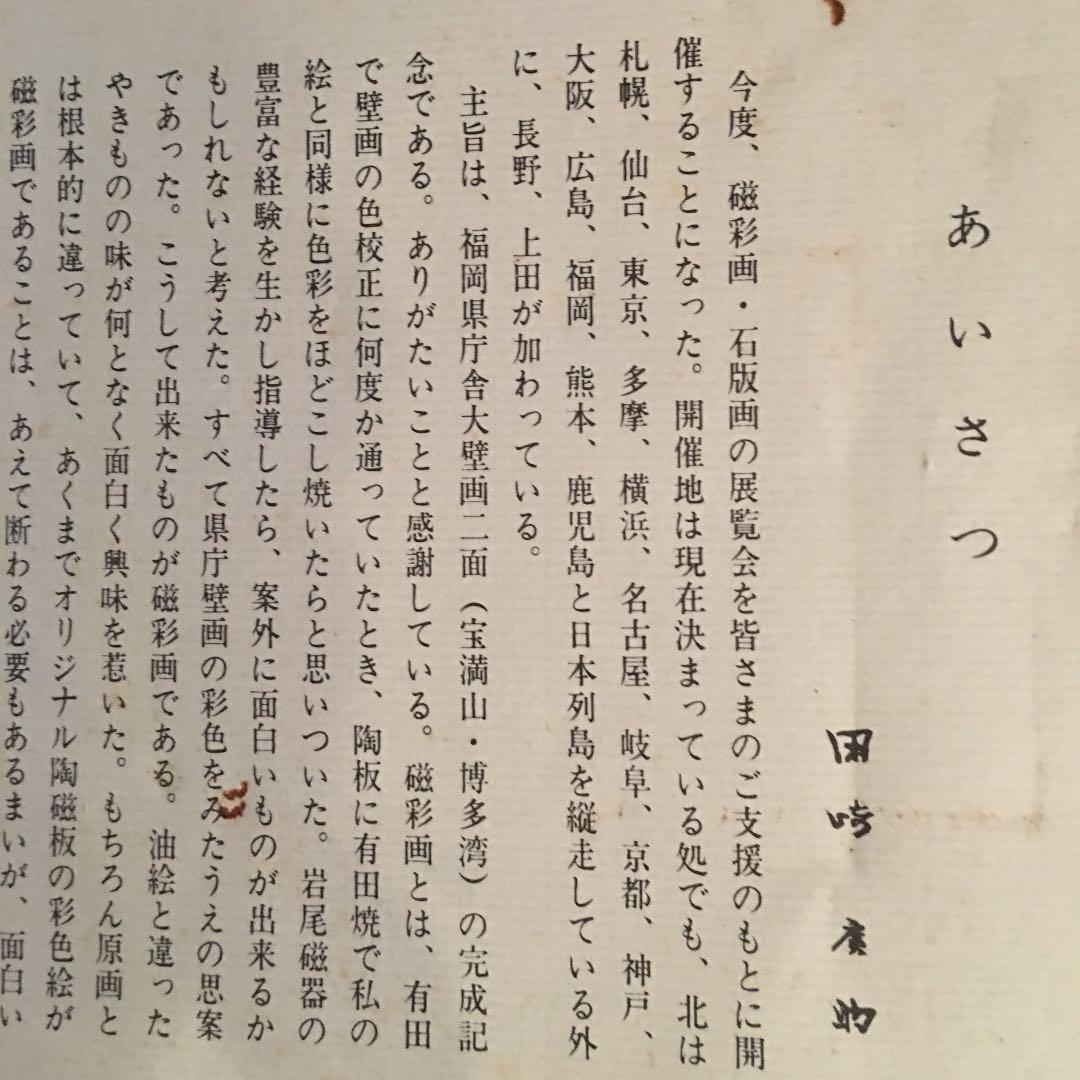 あいさつ
田崎廣助
今度、磁彩画・石版画の展覧会を皆さまのご支援のもとに開
催することになった。開催地は現在決まっている処でも、北は
札幌、仙台、東京、多摩、横浜、名古屋、岐阜、京都、神戸、
大阪、広島、福岡、熊本、鹿児島と日本列島を縦走している外
に、長野、上田が加わっている。
主旨は、福岡県庁舎大壁画二面（宝満山・博多湾）の完成記
念である。ありがたいことと感謝している。磁彩画とは、有田
で壁画の色校正に何度か通っていたとき、陶板に有田焼で私の
絵と同様に色彩をほどこし焼いたらと思いついた。岩尾磁器の
豊富な経験を生かし指導したら、案外に面白いものが出来るか
もしれないと考えた。すべて県庁壁画の彩色をみたうえの思案
であった。こうして出来たものが磁彩画である。油絵と違った
やきものの味が何となく面白く興味を惹いた。もちろん原画と
は根本的に違っていて、あくまでオリジナル陶磁板の彩色絵が
磁彩画であることは、あえて断わる必要もあるまいが、面白い